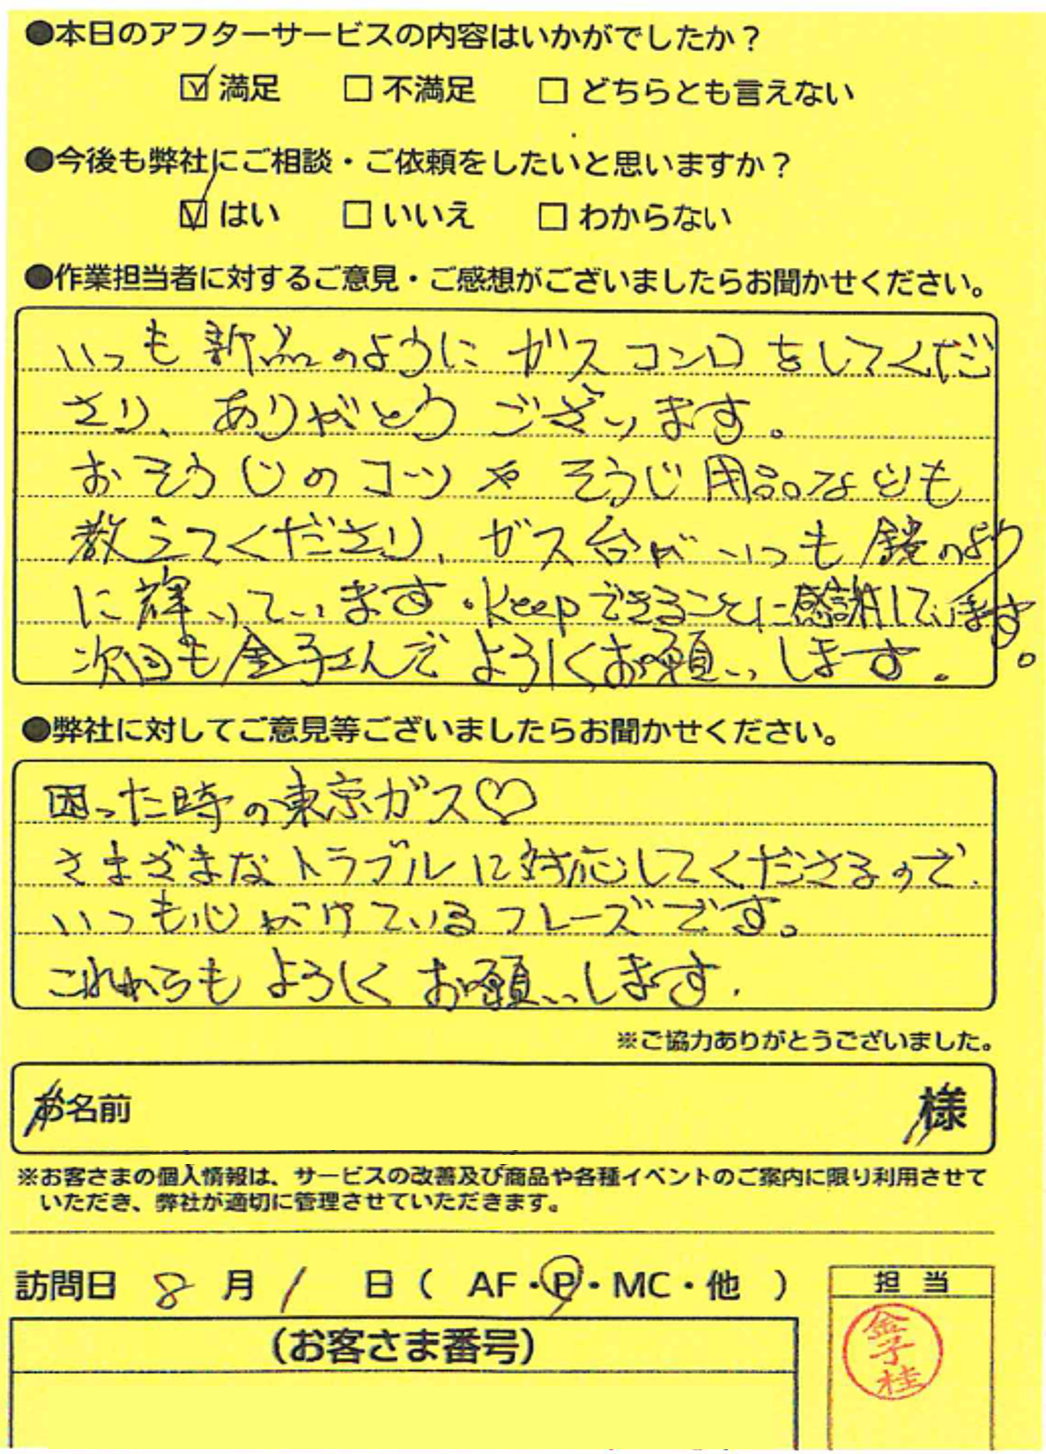 ●本日のアフターサービスの内容はいかがでしたか？
☑満足 □不満足 □どちらとも言えない
●今後も弊社にご相談・ご依頼をしたいと思いますか？
☑はい □いいえ □わからない
●作業担当者に対するご意見・ご感想がございましたらお聞かせください。
いつも新品のようにガスコンロをしてくだ
さり、ありがとうございます。
おそうじのコツやそうじ用品なども
教えてくださり、ガス台がいつも鏡のよう
に輝いています。keepできることに感謝しています。
次回も金子さんでよろしくお願いします。
●弊社に対してご意見等ございましたらお聞かせください。
困った時の東京ガス♡
さまざまなトラブルに対応してくださるので、
いつも心がけているフレーズです。
これからもよろしくお願いします。
※ご協力ありがとうございました。
お名前 様
※お客さまの個人情報は、サービスの改善及び商品や各種イベントのご案内に限り利用させて
いただき、弊社が適切に管理させていただきます。
訪問日 8月1日（AF・P・MC・他）
担当
（お客さま番号）
金子桂